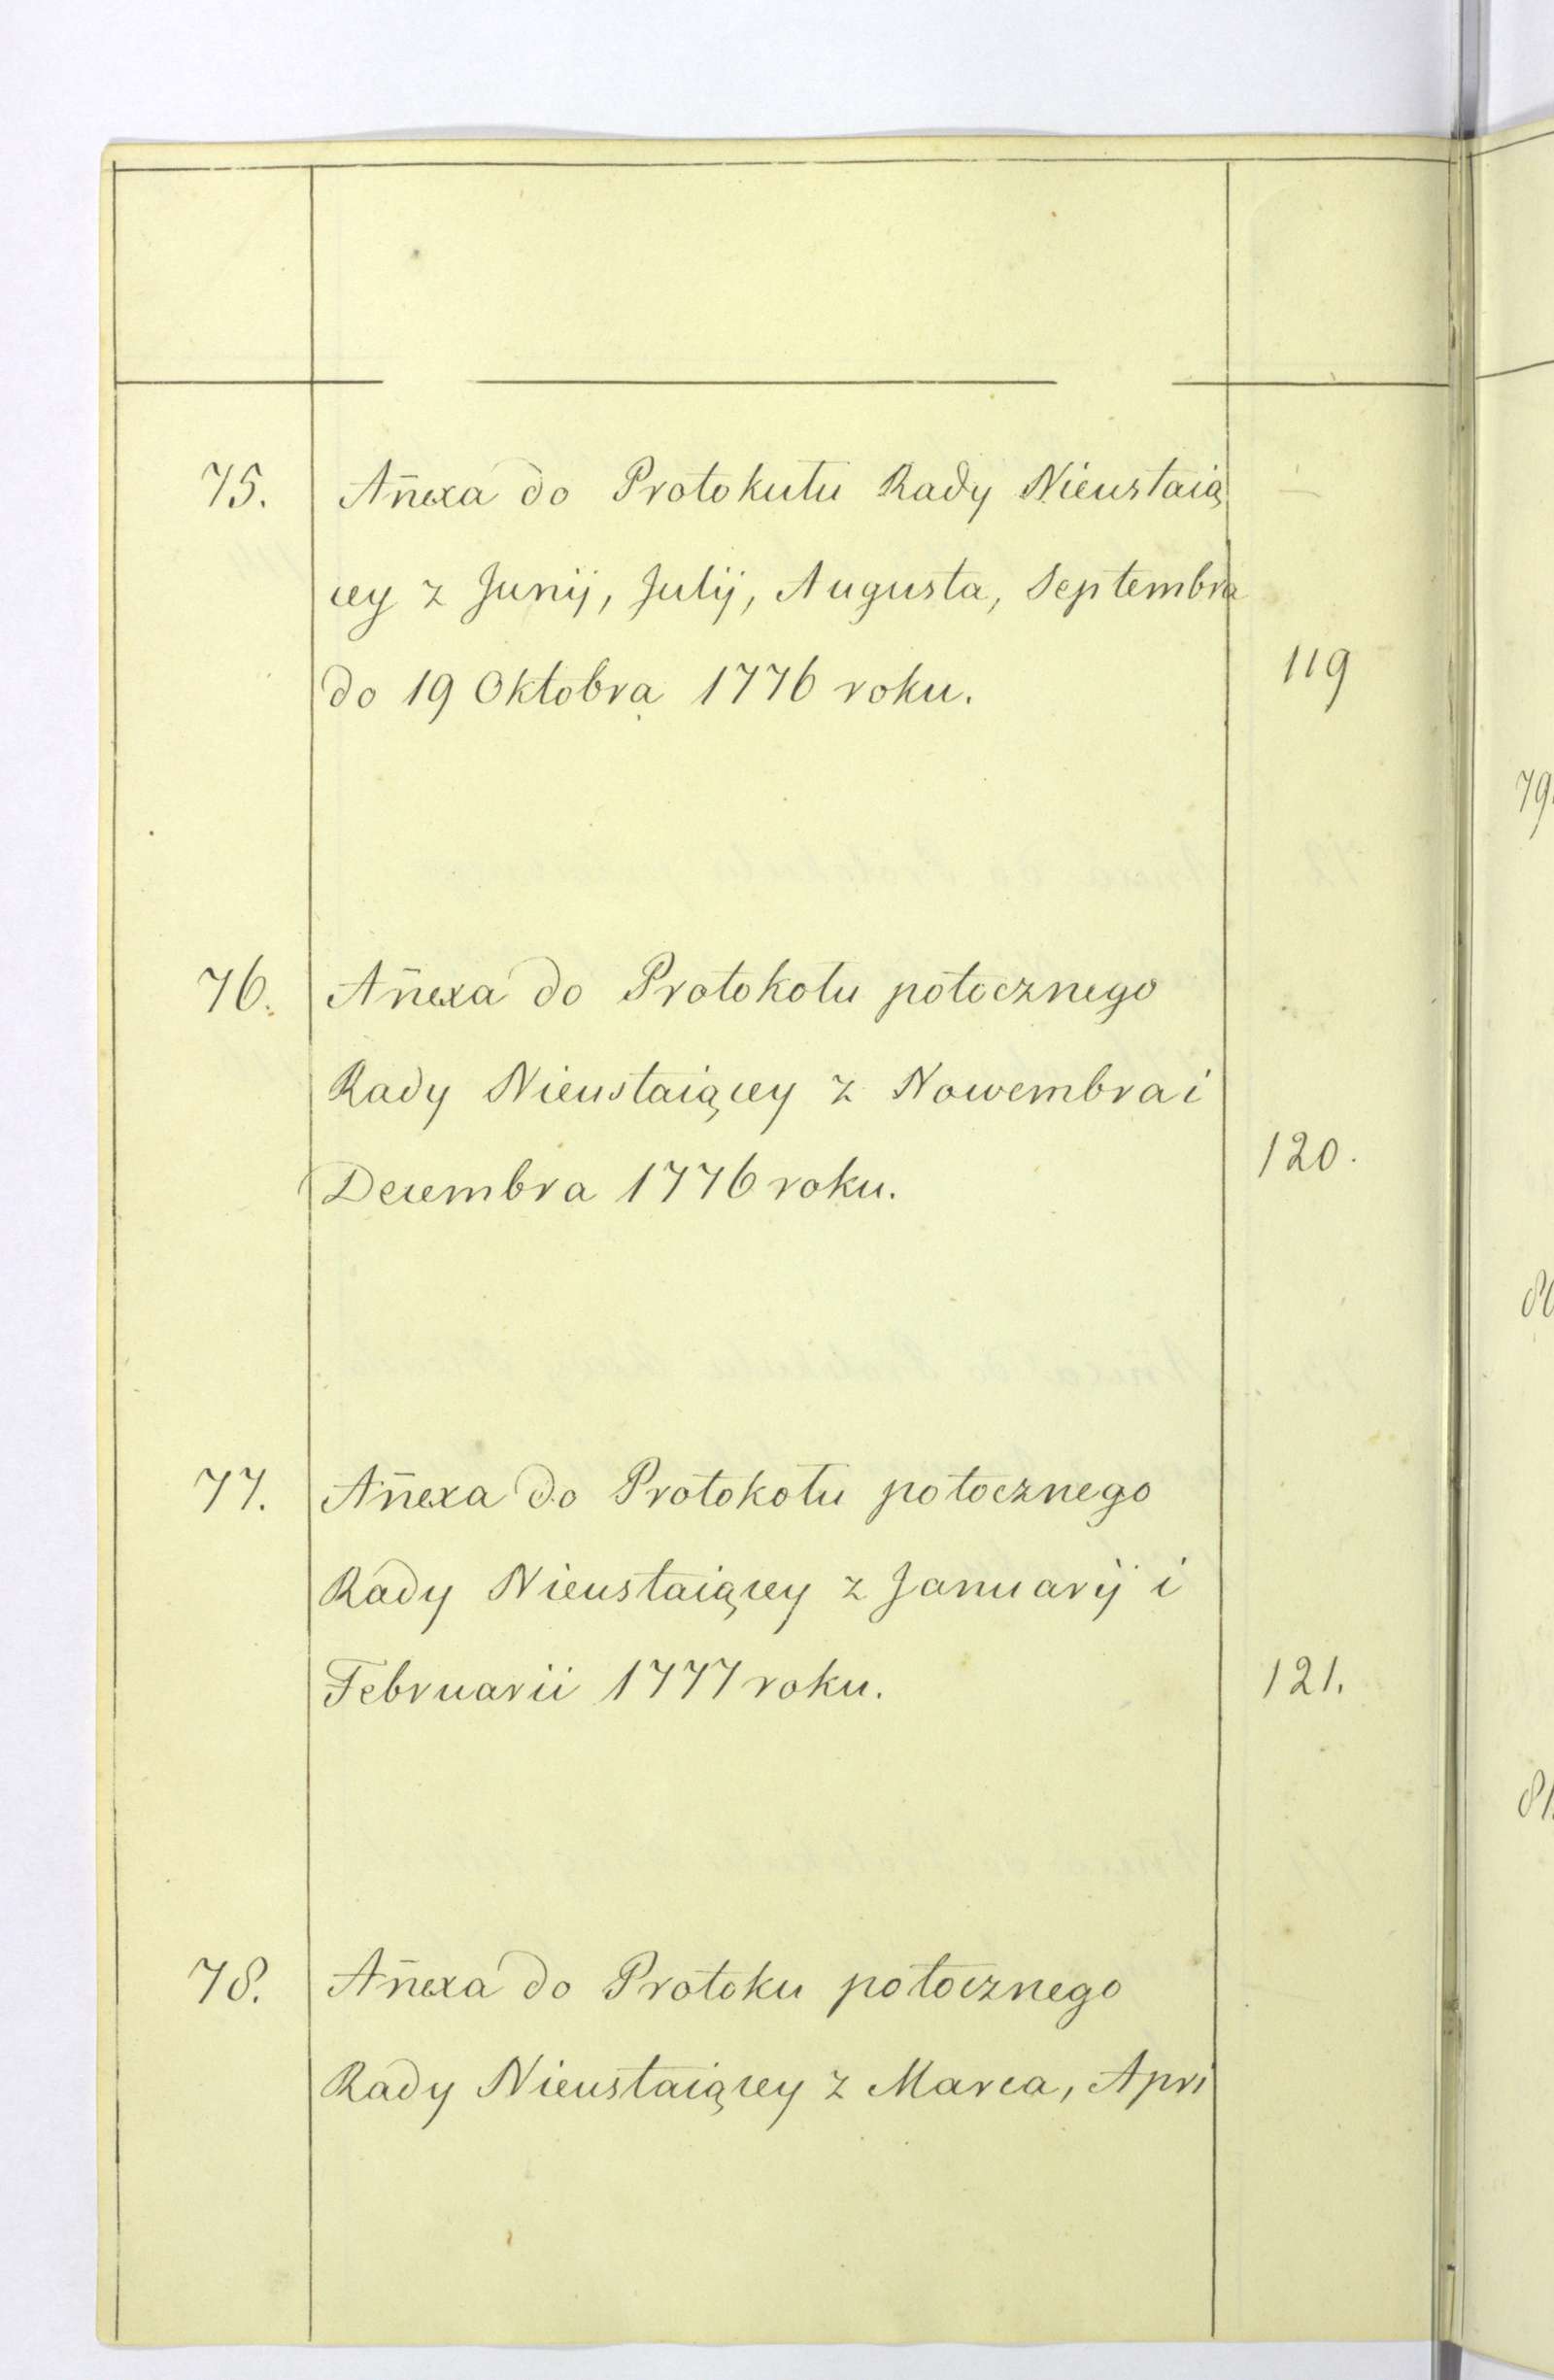 75. Añexa do Protokułu Rady Nieustaią
cey z Junij, Julij, Augusta, Septembra
do 19 Oktobra 1776 roku. 119
76. Añexa do Protokołu potocznego
Rady Nieustaiącey z Nowembra i
Decembra 1776 roku. 120.
77. Añexa do Protokołu potocznego
Rady Nieustaiącey z Januarij i
Februarii 1777 roku. 121.
78. Añexa do Protoku potocznego
Rady Nieustaiącey z Marca, Apri
79.
81.